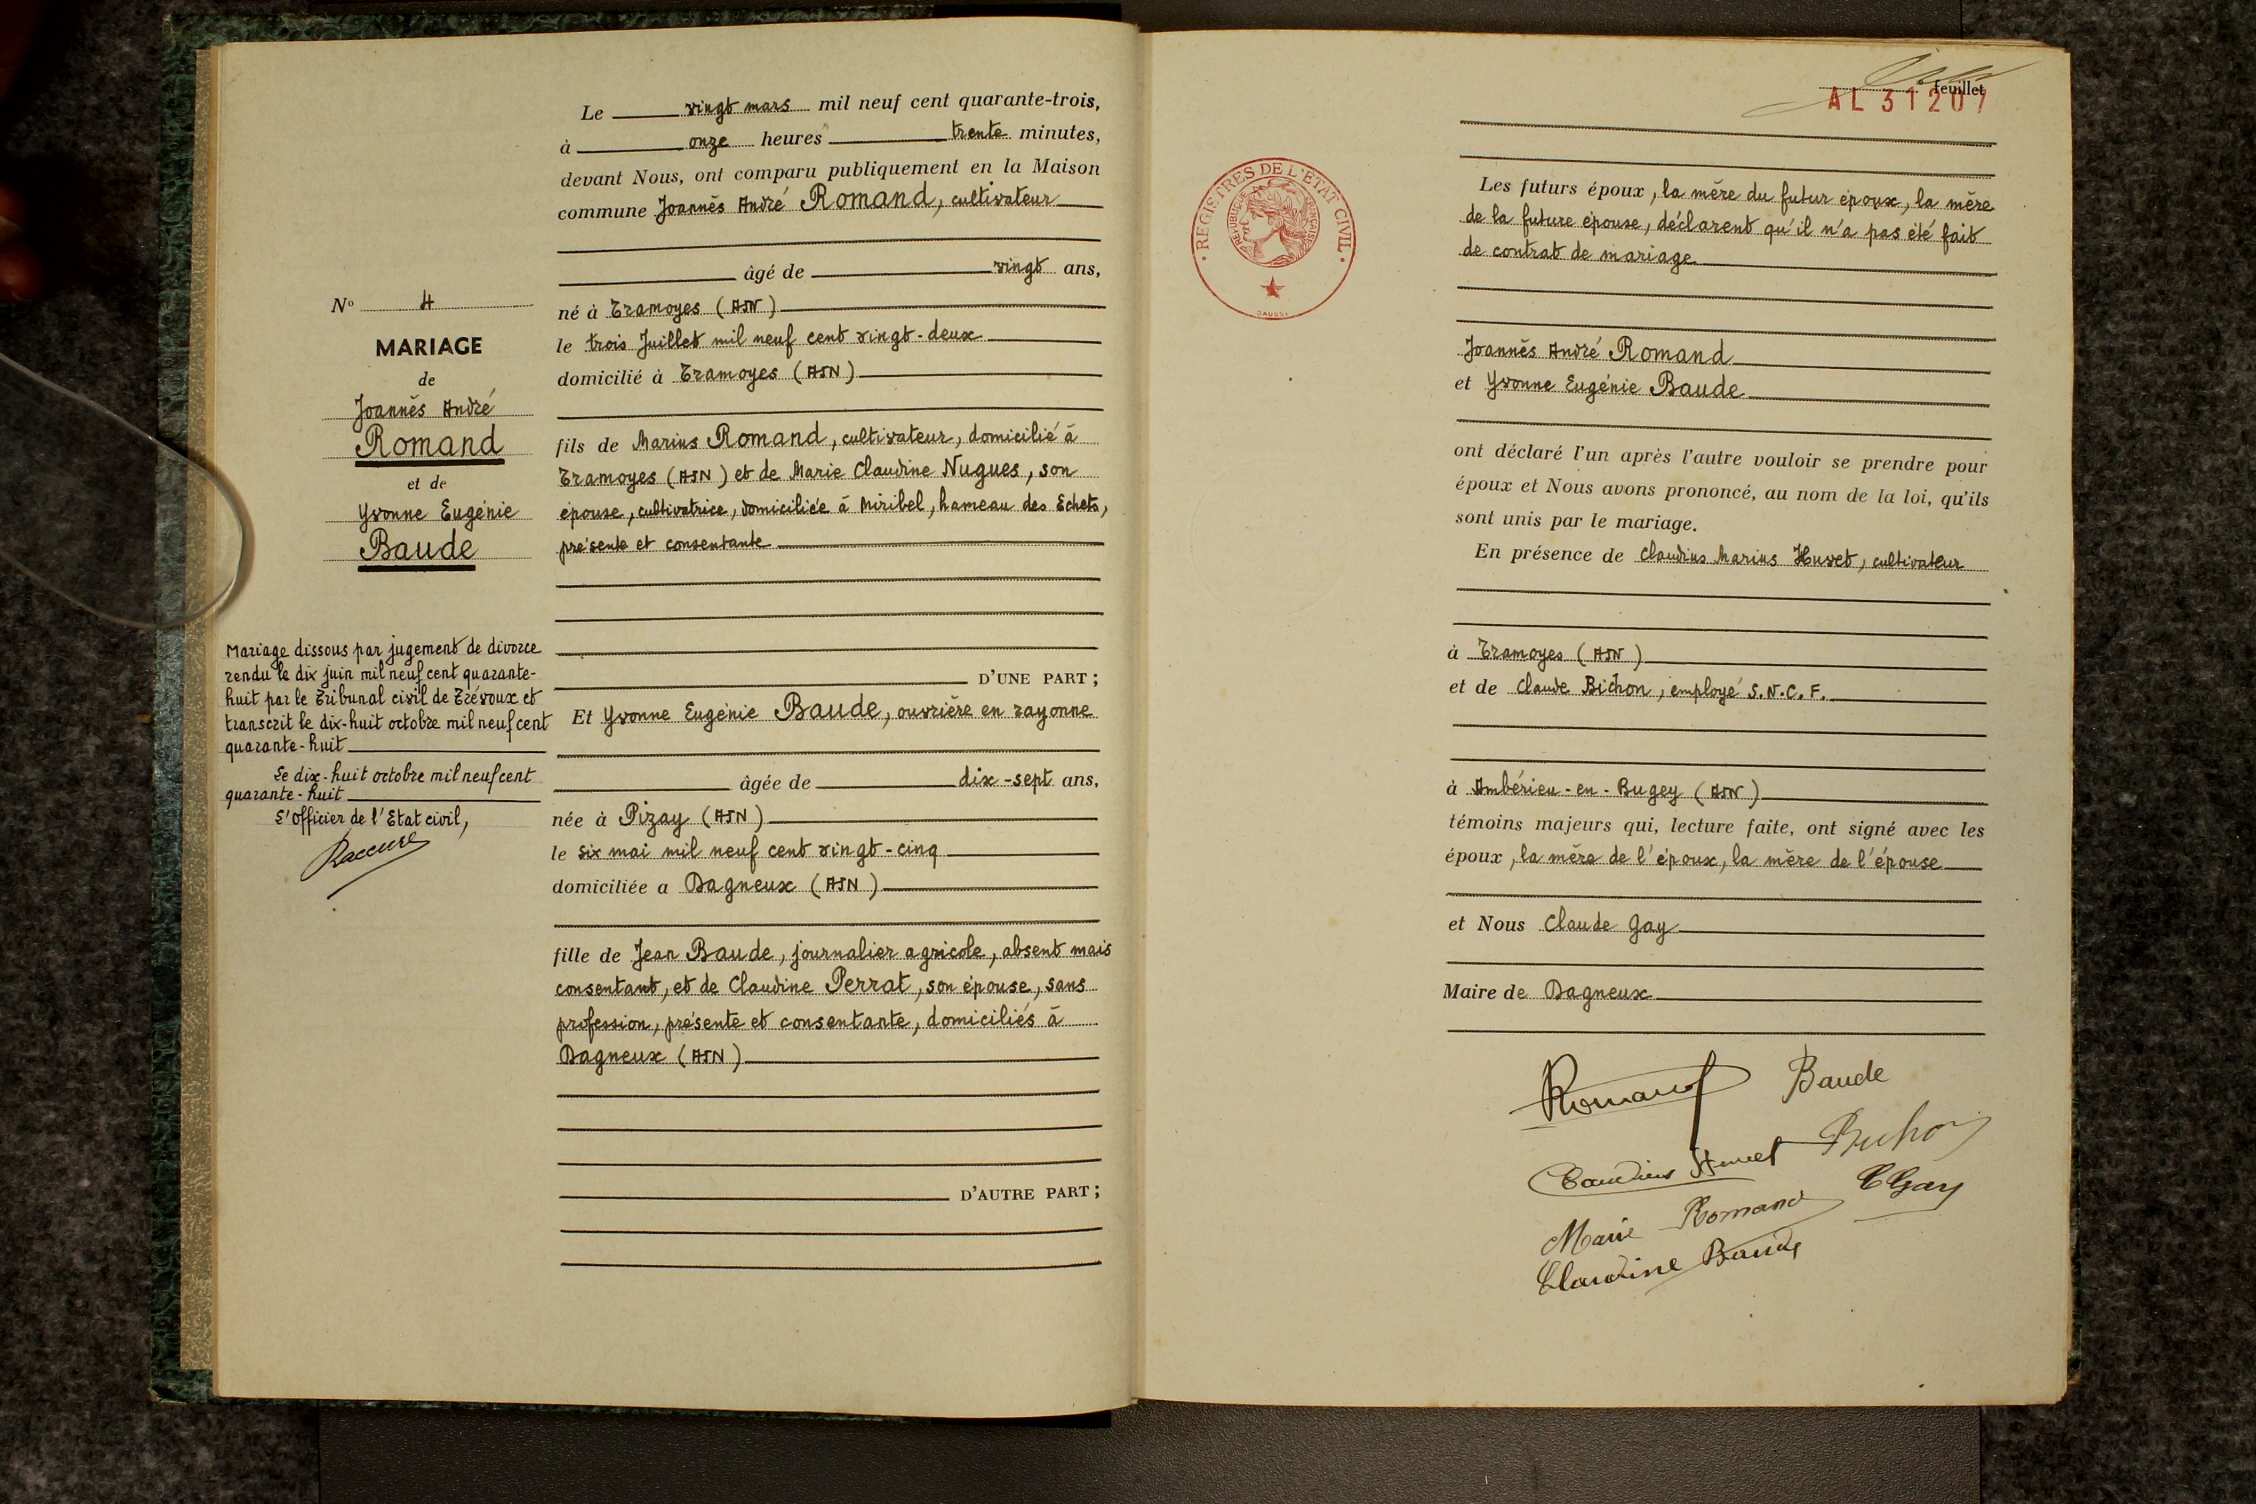 Le vingt mars mil neuf cent quarante-trois,
à onze heures trente minutes,
devant Nous, ont comparu publiquement en la Maison
commune Joannès André Romand, cultivateur
âgé de vingt ans,
né à Tramoyes (AIN)
le trois Juillet mil neuf cent vingt-deux
domicilié à Tramoyes (AIN)
fils de Marius Romand, cultivateur, domicilié à
Tramoyes (AIN) et de Marie Claudine Nugues, son
épouse, cultivatrice, domiciliée à Miribel, hameau des Echets,
présente et consentante
D'UNE PART ;
Et Yvonne Eugénie Baude, ouvrière en rayonne
âgée de dix-sept ans,
née à Pizay (AIN)
le six mai mil neuf cent vingt-cinq
domiciliée a Dagneux (AIN)
fille de Jean Baude, journalier agricole, absent mais
consentant, et de Claudine Perrat, son épouse, sans
profession, présente et consentante, domiciliés à
Dagneux (AIN)
D'AUTRE PART ;
N° 4
MARIAGE
de
Joannès André
Romand
et de
Yvonne Eugénie
Baude
Mariage dissous par jugement de divorce
rendu le dix juin mil neuf cent quarante-
huit par le Tribunal civil de Trévoux et
transcrit le dix-huit octobre mil neuf cent
quarante-huit
Le dix-huit octobre mil neuf cent
quarante-huit
L'officier de l'Etat civil,
feuillet
AL 31207
REGISTRES DE L'ÉTAT CIVIL
RÉPUBLIQUE FRANÇAISE
Les futurs époux, la mère du futur époux, la mère
de la future épouse, déclarent qu'il n'a pas été fait
de contrat de mariage
Joannès André Romand
et Yvonne Eugénie Baude
ont déclaré l'un après l'autre vouloir se prendre pour
époux et Nous avons prononcé, au nom de la loi, qu'ils
sont unis par le mariage.
En présence de Claudius Marius Huvet, cultivateur
à Tramoyes (AIN)
et de Claude Bichon, employé S.N.C.F.
à Ambérieu-en-Bugey (AIN)
témoins majeurs qui, lecture faite, ont signé avec les
époux, la mère de l'époux, la mère de l'épouse
et Nous Claude Gay
Maire de Dagneux
Romand Baude
Claudius Huvet Bichon
Marie Romand CGay
Claudine Baude